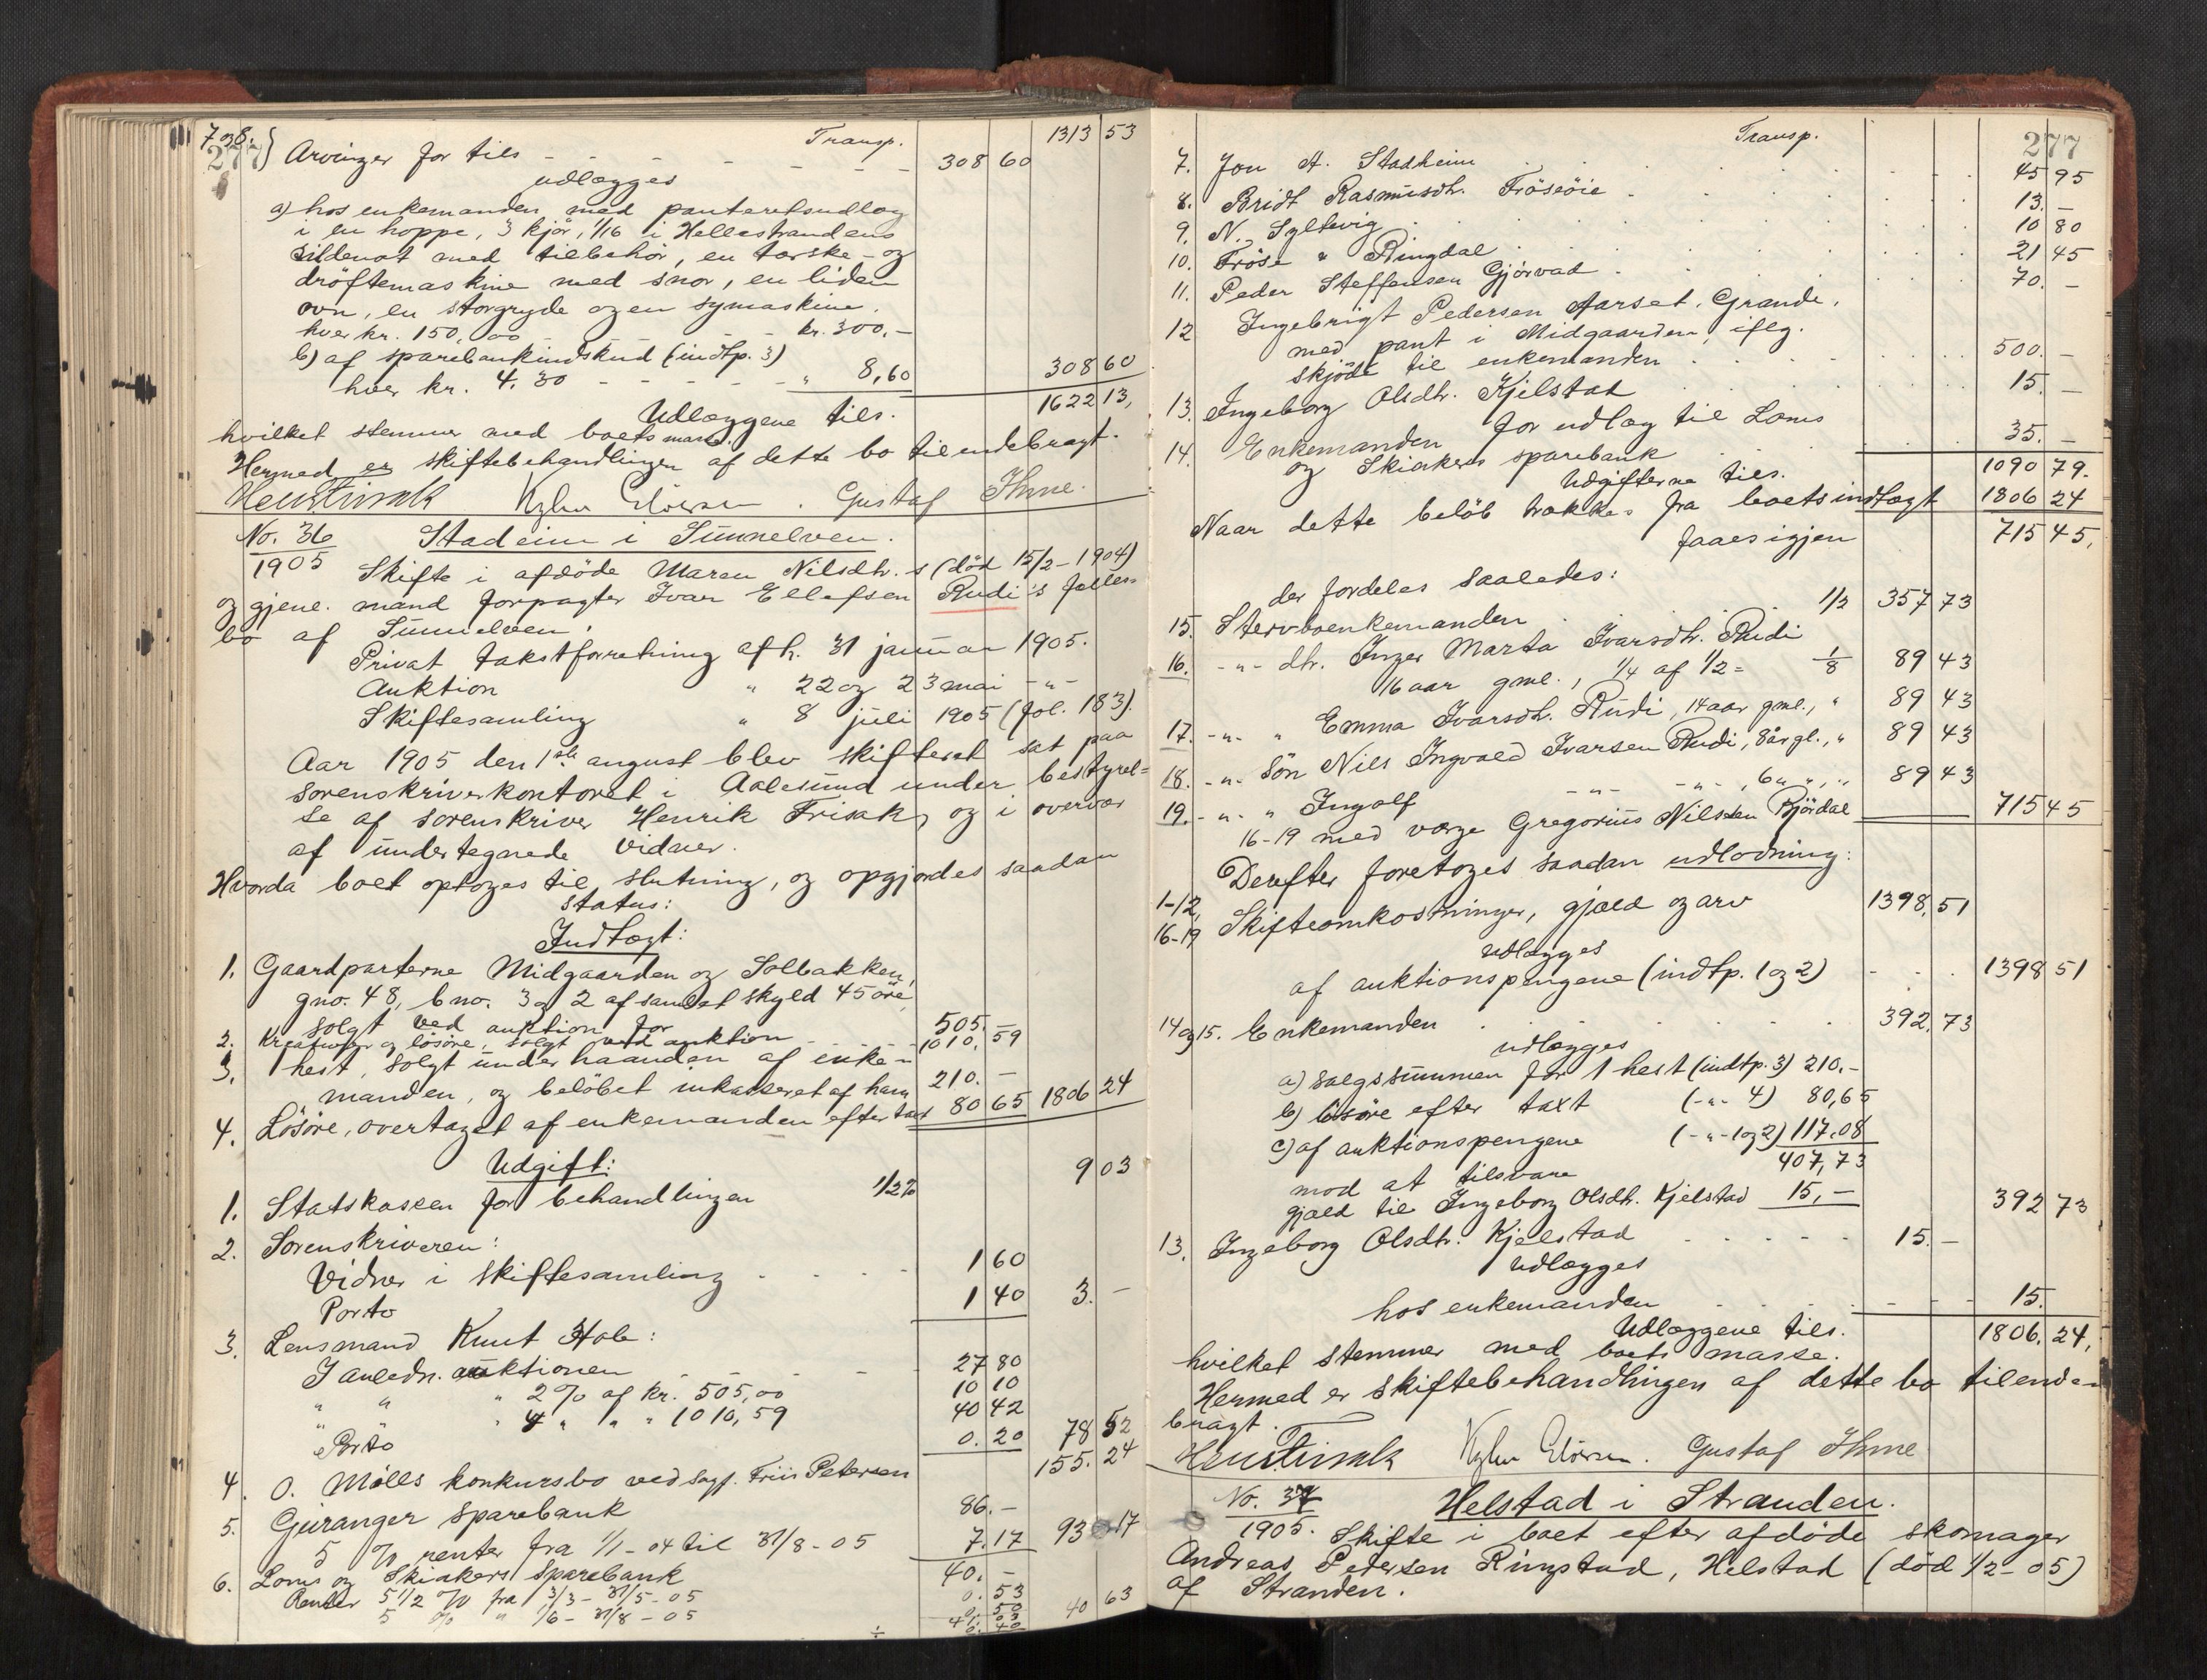 7 og 8. } Arvinger for tils - - - - - 308 60
277 Transp. 1313 53
udlægges
a) hos enkemanden med panteretsudlæg
i en hoppe, 3 kjør, 1/16 i Hellestrandens
sildenot med tilbehör, en tærske- og
dröftemaskine med snor, en liden
ovn, en storgryde og en symaskine.
hver kr. 150,00 - - - kr. 300,-
b) af sparebankindskud (indtp. 3)
hver kr. 4.30 - - - - - " 8,60 308 60
Udlæggene tils. 1622 13,
hvilket stemmer med boets masse.
Hermed er skiftebehandlingen af dette bo tilendebragt.
Gustaf Ihme.
No. 36 Stadeim i Sunnelven.
1905 Skifte i afdöde Maren Nilsdtr.s (död 15/2-1904)
og gjenl. mand forpagter Ivar Ellefsen Rudi's fælles-
bo af Sunnelven.
Privat takstforretning afh. 31 januar 1905.
Auktion " 22 og 23 mai -"-
Skiftesamling " 8 juli 1905 (fol. 183).
Aar 1905 den 1ste august blev skifteret sat paa
sorenskriverkontoret i Aalesund under bestyrel-
se af sorenskriver Henrik Frisak, og i overvær
af undertegnede vidner.
Hvorda boet optoges til slutning, og opgjordes saadan
status:
Indtægt:
1. Gaardparterne Midgaarden og Solbakken,
gno. 48, bno. 3 og 2 af samlet skyld 45 öre,
solgt ved auktion for 505. -
2. Kreaturer og lösöre, solgt ved auktion - - 1010. 59
3. 1 hest, solgt under haanden af enke-
manden, og belöbet inkasseret af ham 210. -
4. Lösöre, overtaget af enkemanden efter taxt 80 65 1806 24
Udgift:
1. Statskassen for behandlingen 1/2% 9 03
2. Sorenskriveren:
Vidner i skiftesamling - - - - 1 60
Porto 1 40 3. -
3. Lensmand Knut Hole:
I anledn. auktionen - - - - 27 80
" " " 2% af kr. 505,00 10 10
" " " 4 " " " 1010,59 40 42
Porto 0. 20 78 52
4. O. Mölls konkursbo ved sagf. Friis Petersen 155. 24
5. Geiranger sparebank 86. -
5 % renter fra 1/1-04 til 31/8-05 7. 17 93 17
6. Loms og Skiakers Sparebank 40. -
Renter 5 1/2 % fra 3/3 - 31/5-05 0. 53
5 % " 1/6 - 31/8-05 0. 50
41. 03
÷ 0. 40 40 63
Transp. 277
7. Jon A. Stadheim 45 95
8. Bridt Rasmusdtr. Fröseöie 13. -
9. N. Syltevig 10 80
10. Fröse " Ringdal 21 45
11. Peder Steffensen Gjörvad 70. -
12 Ingebrigt Pedersen Aarset, Grande,
med pant i Midgaarden iflg.
skjöde til enkemanden 500. -
13. Ingeborg Olsdtr. Kjelstad 15. -
14. Enkemanden for udlæg til Loms
og Skiakers sparebank 35. -
Udgifterne tils. 1090 79.
Naar dette belöb trækkes fra boets indtægt 1806 24
faaes igjen 715 45,
der fordeles saaledes:
15. Stervboenkemanden 1/2 357 73
16. -"- dtr. Inger Marta Ivarsdtr. Rudi
16 aar gml., 1/4 af 1/2 = 1/8 89 43
17. -"- " Emma Ivarsdtr. Rudi, 14 aar gml., " 89 43
18. -"- Sön Nils Ingvald Ivarsen Rudi, 8 år gl., " 89 43
19. -"- " Ingolf -"- -"- , 6 " ", " 89 43
16-19 med værge Gregorius Nilssen Rjördal 715 45
Derefter foretoges saadan udlodning:
1-12,
16-19 Skifteomkostninger, gjæld og arv 1398. 51
udlægges
af auktionspengene (indtp. 1 og 2) - - . 1398 51
14 og 15. Enkemanden 392. 73
udlægges
a) salgssummen for 1 hest (indtp. 3) 210.-
b) lösöre efter taxt (-"- 4) 80,65
c) af auktionspengene (-"- 1 og 2) 117.08
407,73
mod at tilsvare
gjæld til Ingeborg Olsdtr. Kjelstad 15,- 392 73
13. Ingeborg Olsdtr. Kjelstad 15. -
udlægges
hos enkemanden 15.
Udlæggene tils. 1806. 24,
hvilket stemmer med boets masse.
Hermed er skiftebehandlingen af dette bo tilende-
bragt.
Gustaf Ihme
No. 37 Helstad i Stranden.
1905. Skifte i boet efter afdöde skomager
Andreas Pedersen Ringstad, Helstad (död 1/2-05)
af Stranden.